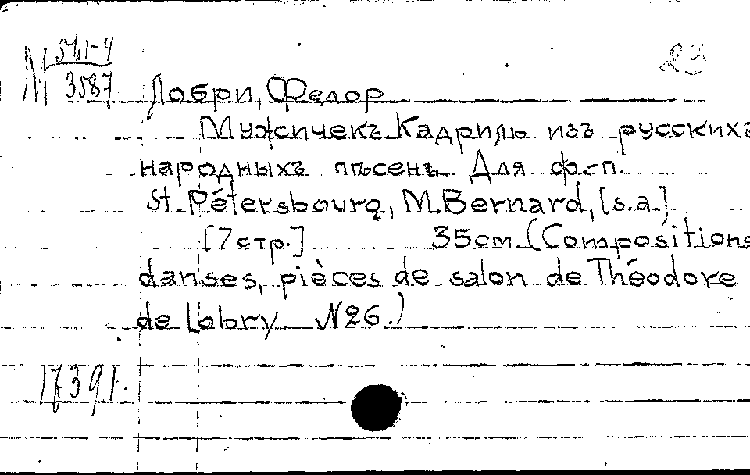 М 571-4
3587
23
Лобри, Федор
Мужичекъ. Кадриль изъ русскихъ
народныхъ пѣсенъ. Для ф-п.
St. Pétersbourg, M. Bernard, [s.a.]
[7 стр.] 35 см. (Compositions
danses, pièces de salon de Théodore
de Lobry N26.)
17391.